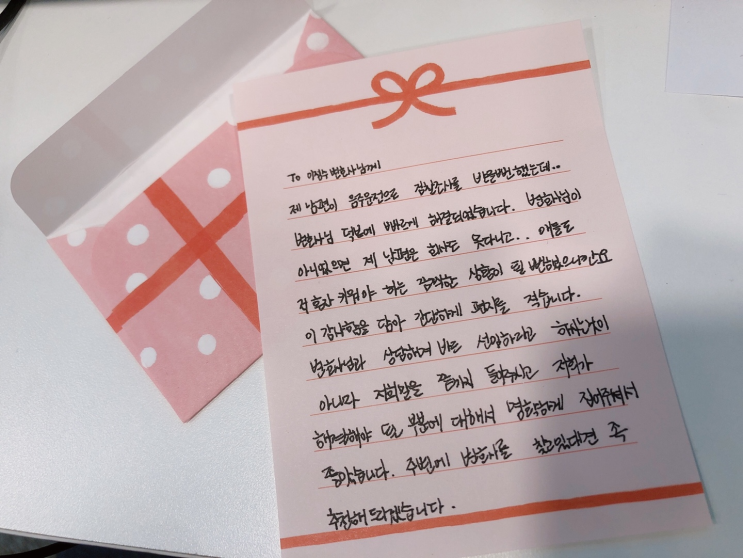 To 이정수 변호사님께
제 남편이 음주운전으로 경찰조사를 받을뻔 했는데..
변호사님 덕분에 빠르게 해결되었습니다. 변호사님이
아니었으면 제 남편은 회사도 못다니고.. 애들도
저 혼자 키워야 하는 끔찍한 상황이 될 뻔했으니까요
이 감사함을 담아 간단하게 편지를 적습니다.
변호사님과 상담하며 바로 선임하라고 하시는것이
아니라 저희말을 끝까지 들어주시고 저희가
해결해야 될 부분에 대해서 명확하게 집어주셔서
좋았습니다. 주변에 변호사를 찾고있다면 꼭
추천해드리겠습니다.